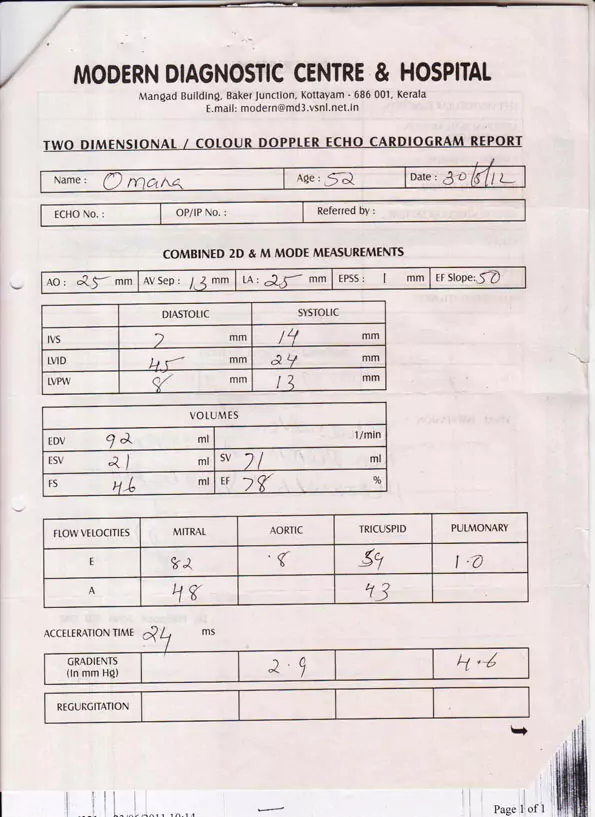 MODERN DIAGNOSTIC CENTRE & HOSPITAL
Mangad Building, Baker Junction, Kottayam - 686 001, Kerala
E.mail: modern@md3.vsnl.net.in
TWO DIMENSIONAL / COLOUR DOPPLER ECHO CARDIOGRAM REPORT
Name : Omana Age : 52 Date : 30/8/12
ECHO No. : OP/IP No. : Referred by :
COMBINED 2D & M MODE MEASUREMENTS
AO : 25 mm AV Sep : 13 mm LA : 25 mm EPSS : 1 mm EF Slope: 50
DIASTOLIC SYSTOLIC
IVS 7 mm 14 mm
LVID 45 mm 24 mm
LVPW 8 mm 13 mm
VOLUMES
EDV 92 ml 1/min
ESV 21 ml SV 71 ml
FS 46 ml EF 78 %
FLOW VELOCITIES MITRAL AORTIC TRICUSPID PULMONARY
E 82 .8 59 1.0
A 48 43
ACCELERATION TIME 24 ms
GRADIENTS 2.9 4.6
(In mm Hg)
REGURGITATION
Page 1 of 1